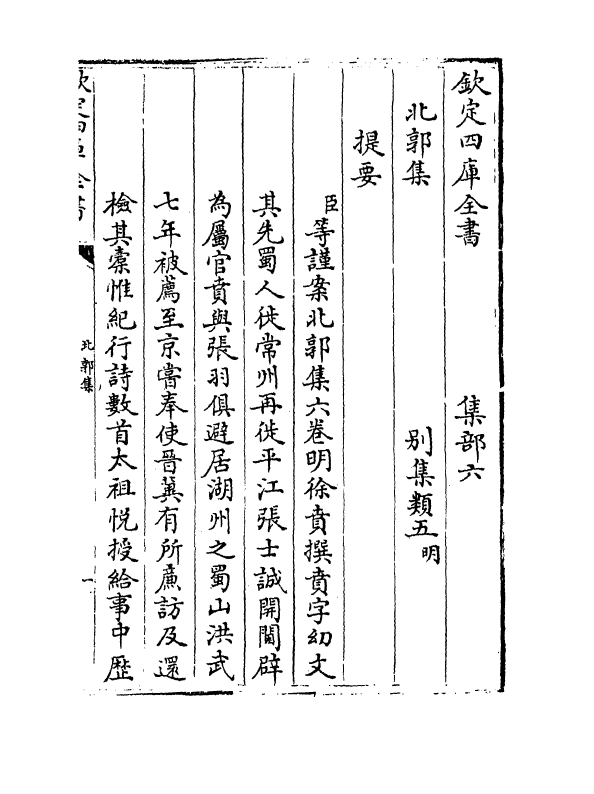 欽定四庫全書　集部六
北郭集　別集類五明
提要
臣等謹案北郭集六卷明徐賁撰賁字幼文
其先蜀人徙常州再徙平江張士誠開閫辟
為屬官賁與張羽俱避居湖州之蜀山洪武
七年被薦至京嘗奉使晉冀有所廉訪及還
檢其橐惟紀行詩數首太祖悅授給事中歷
欽定四庫全書
北郭集
一